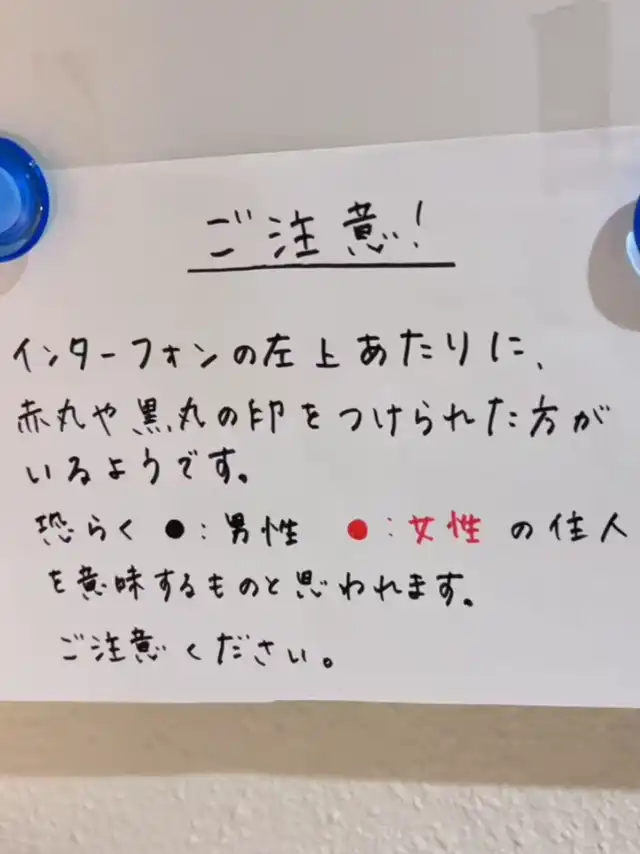 ご注意!
インターフォンの左上あたりに、
赤丸や黒丸の印をつけられた方が
いるようです。
恐らく ●:男性 ●:女性 の住人
を意味するものと思われます。
ご注意ください。